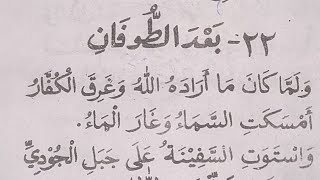 ٢٢- بَعْدَ الطُّوفَانِ
وَلَمَّا كَانَ مَا أَرَادَهُ اللّٰهُ وَغَرِقَ الْكُفَّارُ
أَمْسَكَتِ السَّمَاءُ وَغَارَ الْمَاءُ.
وَاسْتَوَتِ السَّفِيْنَةُ عَلَى جَبَلِ الْجُوْدِيِّ